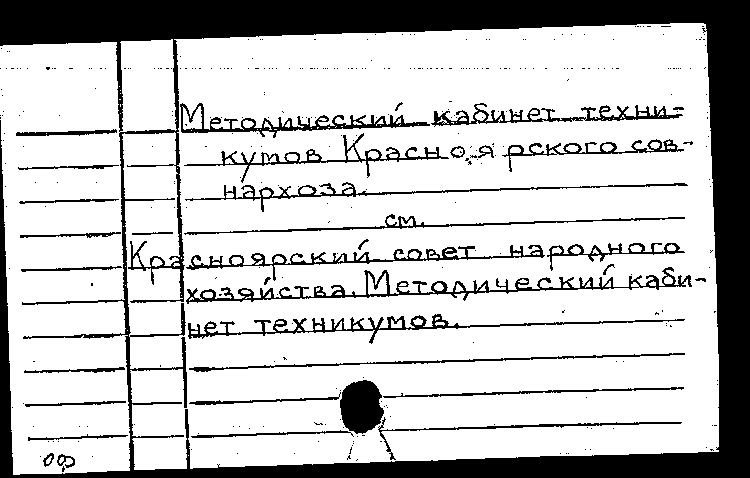 Методический кабинет техни=
кумов Красноярского сов-
нархоза.
см.
Красноярский совет народного
хозяйства. Методический каби-
нет техникумов.